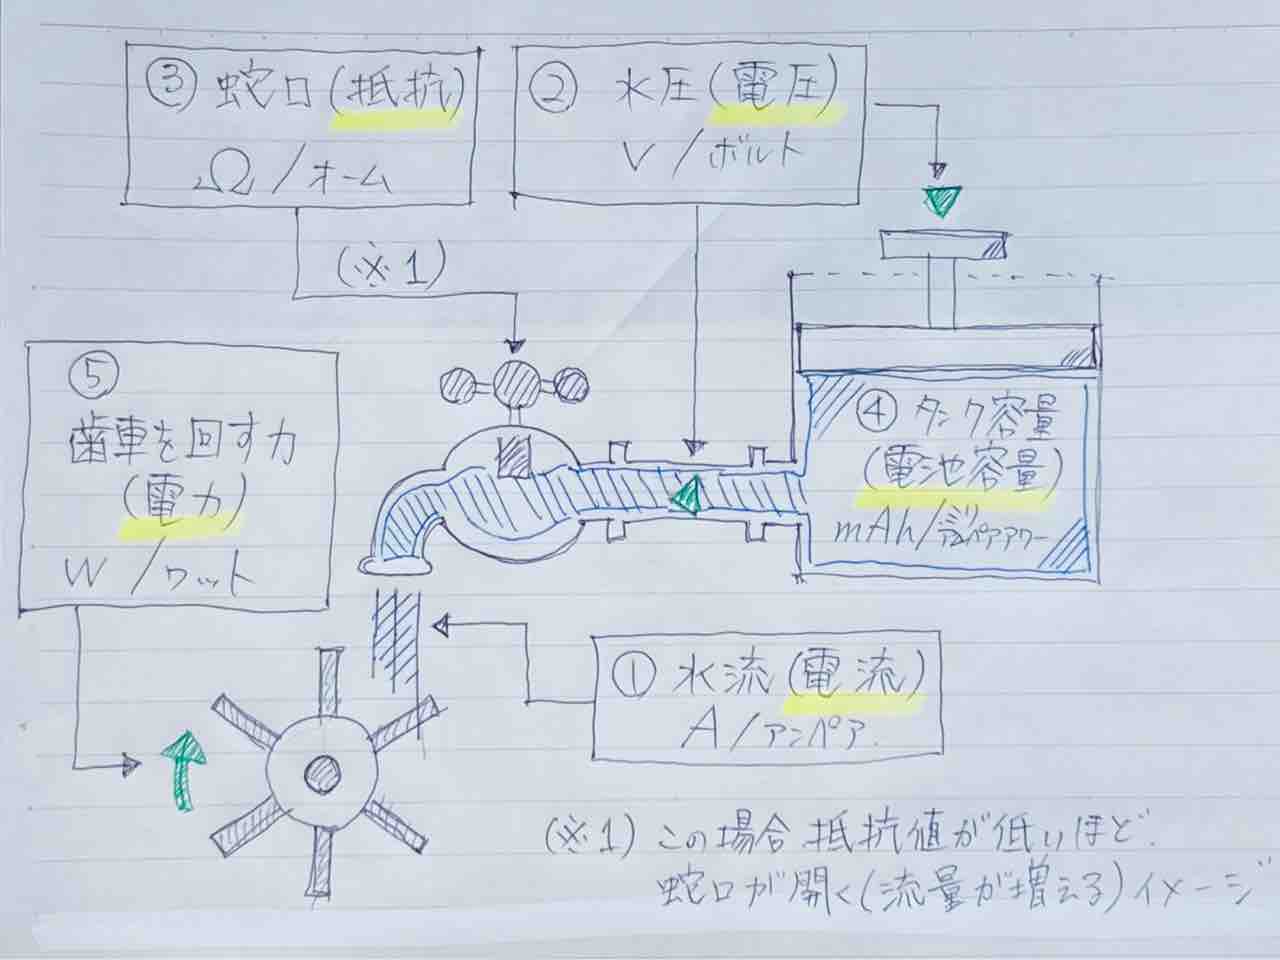 ③ 蛇口(抵抗)
Ω/オーム
② 水圧(電圧)
V/ボルト
(※1)
⑤
歯車を回す力
(電力)
W/ワット
④ タンク容量
(電池容量)
mAh/ミリアンペアアワー
① 水流(電流)
A/アンペア.
(※1) この場合 抵抗値が低いほど.
蛇口が開く(流量が増える)イメージ